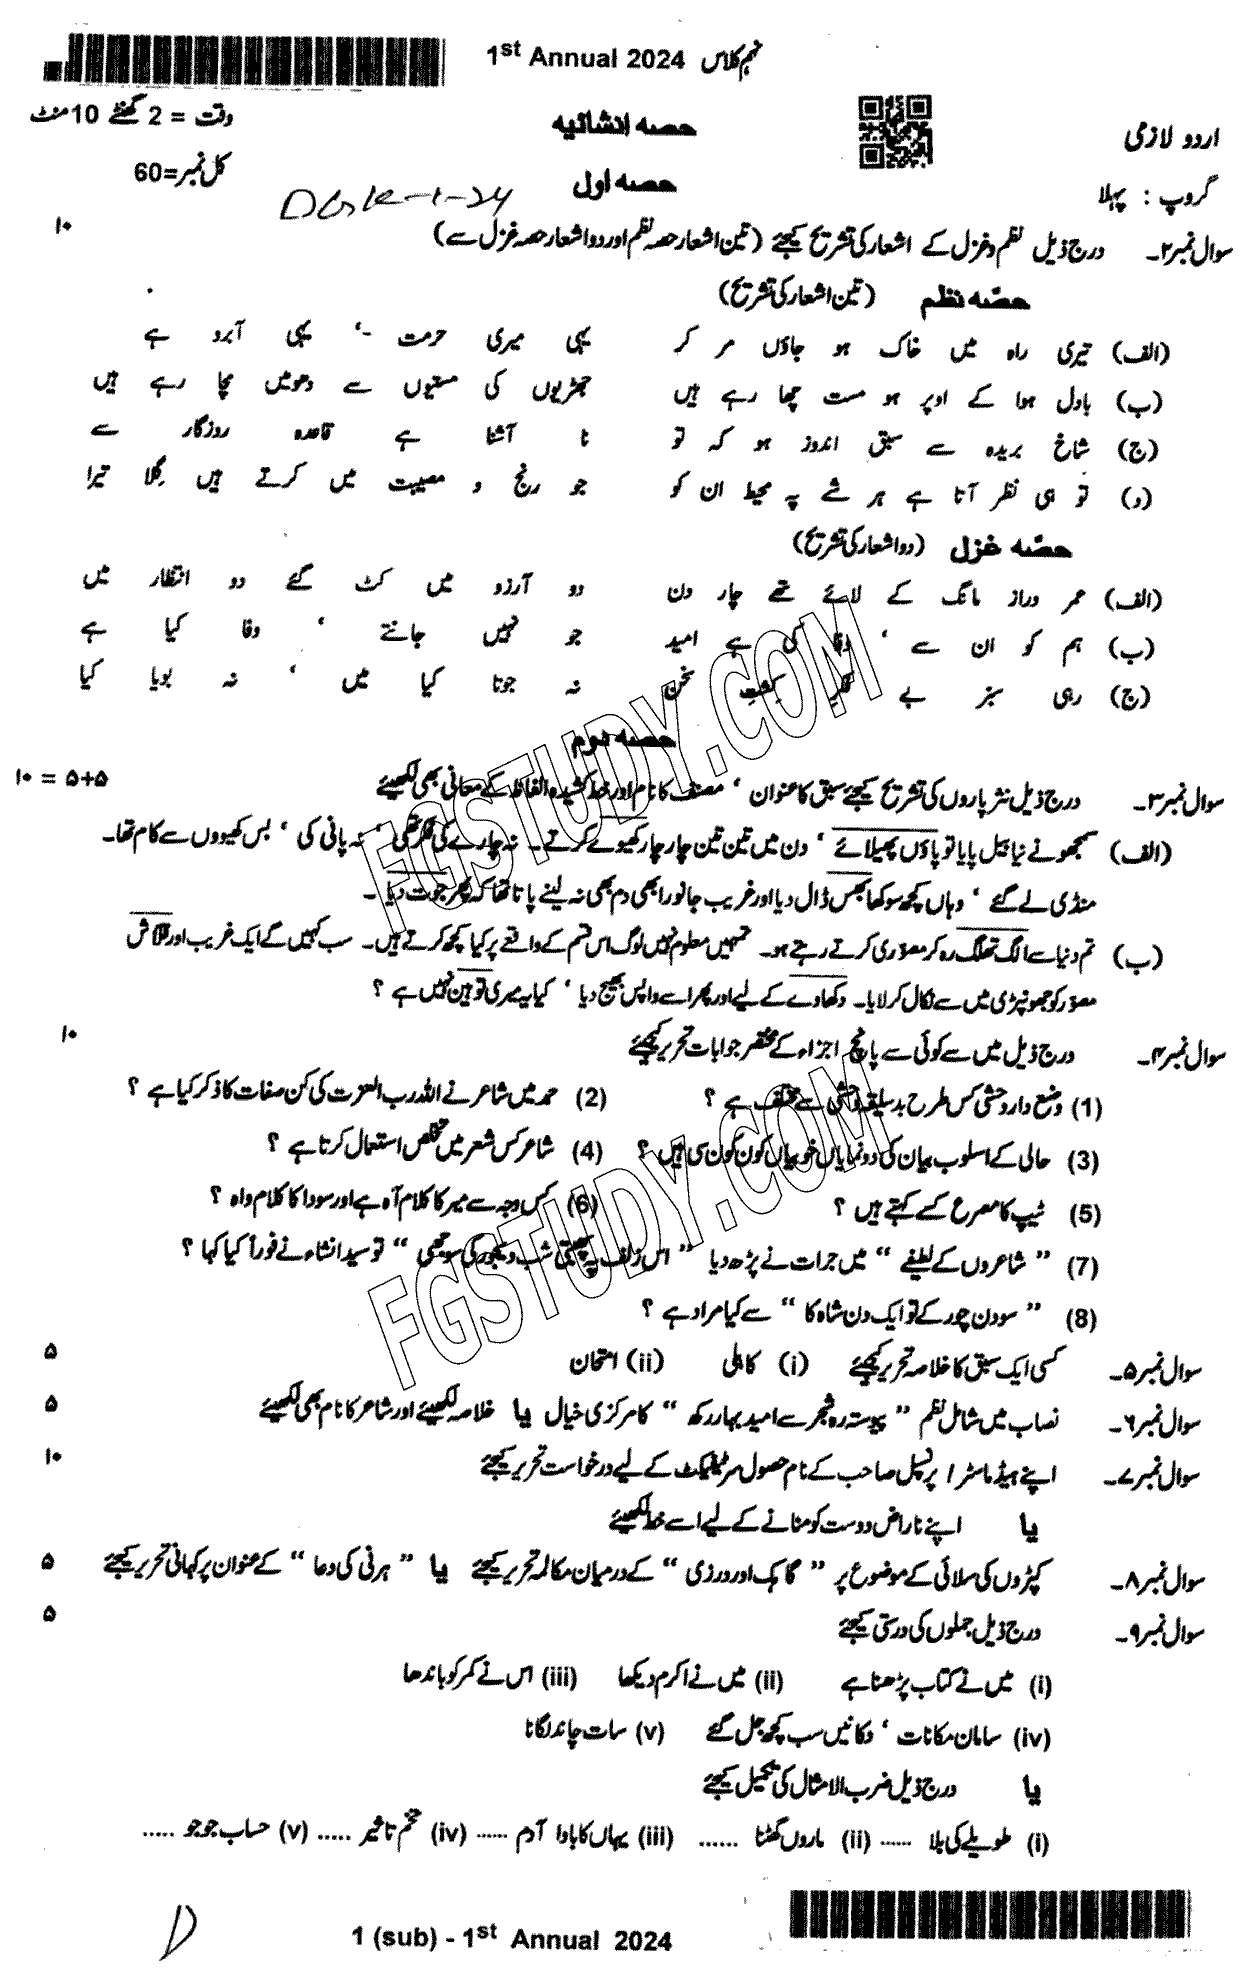 1st Annual 2024 نہم کلاس
اردو لازمی حصہ انشائیہ وقت = 2 گھنٹے 10 منٹ
گروپ : پہلا حصہ اول کل نمبر=60
DGK-1-24
سوال نمبر۲۔ درج ذیل نظم و غزل کے اشعار کی تشریح کیجئے (تین اشعار حصہ نظم اور دو اشعار حصہ غزل سے) ۱۰
حصّہ نظم (تین اشعار کی تشریح)
(الف) تیری راہ میں خاک ہو جاؤں مر کر یہی میری حرمت -، یہی آبرو ہے
(ب) بادل ہوا کے اوپر ہو مست چھا رہے ہیں جھڑیوں کی مستیوں سے دھومیں مچا رہے ہیں
(ج) شاخ بریدہ سے سبق اندوز ہو کہ تو نا آشنا ہے قاعدہ روزگار سے
(د) تو ہی نظر آتا ہے ہر شے پہ محیط ان کو جو رنج و مصیبت میں کرتے ہیں گِلا تیرا
حصّہ غزل (دو اشعار کی تشریح)
(الف) عمر دراز مانگ کے لائے تھے چار دن دو آرزو میں کٹ گئے دو انتظار میں
(ب) ہم کو ان سے ، وفا کی ہے امید جو نہیں جانتے ، وفا کیا ہے
(ج) رہی سبز بے فکر کِشتِ سخن نہ جوتا کیا میں ، نہ بویا کیا
حصہ دوم
سوال نمبر۳۔ درج ذیل نثر پاروں کی تشریح کیجئے سبق کا عنوان ، مصنف کا نام اور خط کشیدہ الفاظ کے معانی بھی لکھیئے ۵+۵ = ۱۰
(الف) سمجھو نے نیا بیل پایا تو پاؤں پھیلائے ، دن میں تین تین چار چار کھیوے کرتے۔ نہ چارے کی فکر تھی ، نہ پانی کی ، بس کھیووں سے کام تھا۔
منڈی لے گئے ، وہاں کچھ سوکھا بھس ڈال دیا اور غریب جانور ابھی دم بھی نہ لینے پاتا تھا کہ پھر جوت دیا ۔
(ب) تم دنیا سے الگ تھلگ رہ کر مصوّری کرتے رہے ہو۔ تمہیں معلوم نہیں لوگ اس قسم کے واقعے پر کیا کچھ کرتے ہیں۔ سب کہیں گے ایک غریب اور قلاش
مصوّر کو جھونپڑی میں سے نکال کر لایا۔ دکھاوے کے لیے اور پھر اسے واپس بھیج دیا ، کیا یہ میری توہین نہیں ہے ؟
سوال نمبر۴۔ درج ذیل میں سے کوئی سے پانچ اجزاء کے مختصر جوابات تحریر کیجیئے ۱۰
(1) وضع دار وحشی کس طرح بد سلیقہ وحشی سے مختلف ہے ؟ (2) حمد میں شاعر نے اللہ رب العزت کی کن صفات کا ذکر کیا ہے ؟
(3) حالی کے اسلوب بیان کی دو نمایاں خوبیاں کون کون سی ہیں ؟ (4) شاعر کس شعر میں تخلص استعمال کرتا ہے ؟
(5) ٹیپ کا مصرع کسے کہتے ہیں ؟ (6) کس وجہ سے میر کا کلام آہ ہے اور سودا کا کلام واہ ؟
(7) " شاعروں کے لطیفے " میں جرات نے پڑھ دیا " اس زلف پہ پھبتی شب دیجور کی سوجھی " تو سید انشاء نے فوراً کیا کہا ؟
(8) " سو دن چور کے تو ایک دن شاہ کا " سے کیا مراد ہے ؟
سوال نمبر۵۔ کسی ایک سبق کا خلاصہ تحریر کیجیئے (i) کاہلی (ii) امتحان ۵
سوال نمبر۶۔ نصاب میں شامل نظم " پیوستہ رہ شجر سے امید بہار رکھ " کا مرکزی خیال یا خلاصہ لکھیئے اور شاعر کا نام بھی لکھیئے ۵
سوال نمبر۷۔ اپنے ہیڈ ماسٹر / پرنسپل صاحب کے نام حصول سرٹیفکیٹ کے لیے درخواست تحریر کیجئے ۱۰
یا اپنے ناراض دوست کو منانے کے لیے اسے خط لکھیئے
سوال نمبر۸۔ کپڑوں کی سلائی کے موضوع پر " گاہک اور درزی " کے درمیان مکالمہ تحریر کیجئے یا " ہرنی کی دعا " کے عنوان پر کہانی تحریر کیجئے ۵
سوال نمبر۹۔ درج ذیل جملوں کی درستی کیجئے ۵
(i) میں نے کتاب پڑھنا ہے (ii) میں نے اکرم دیکھا (iii) اس نے کمر کو باندھا
(iv) سامان مکانات ، دکانیں سب کچھ جل گئے (v) سات چاند لگانا
یا درج ذیل ضرب الامثال کی تکمیل کیجئے
(i) طویلے کی بلا ...... (ii) ماروں گھٹنا ...... (iii) یہاں کا باوا آدم ...... (iv) تخم تاثیر ..... (v) حساب جو جو .....
1 (sub) - 1st Annual 2024
FGSTUDY.COM
FGSTUDY.COM